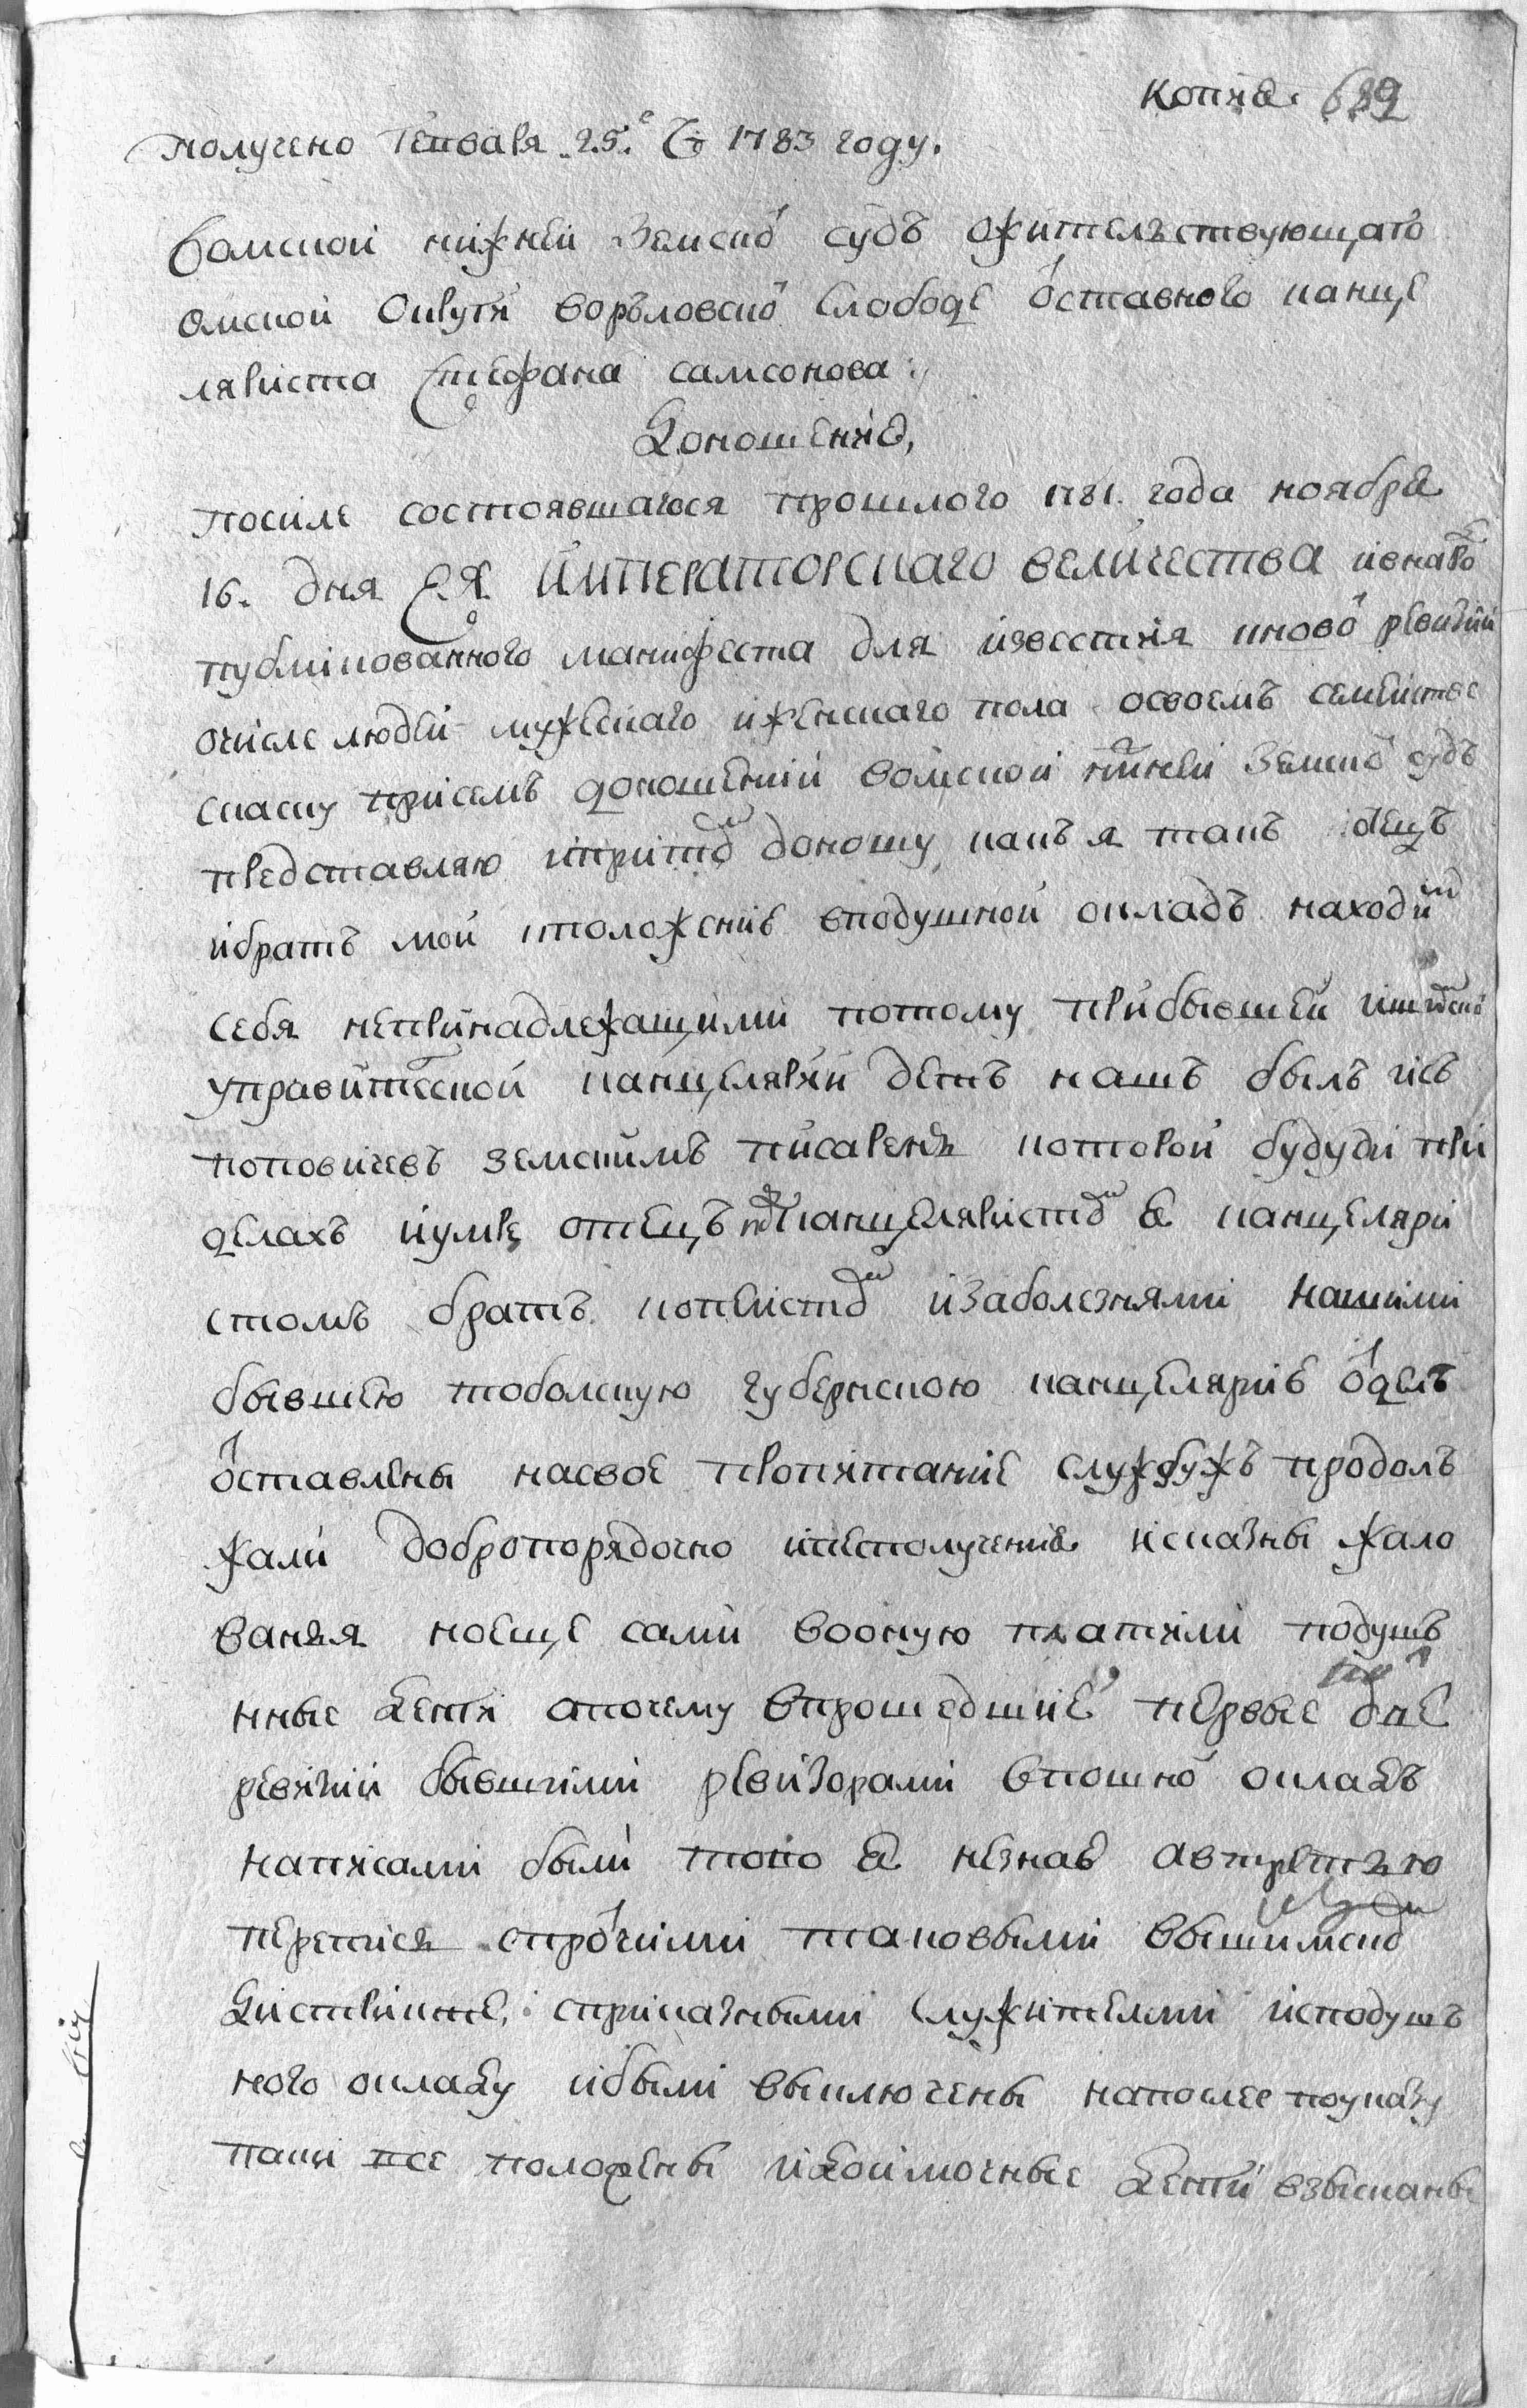 копия. 689
получено генваря 25.е ч 1783 году.
Вомской нижней земской судъ ожителъствующаго
омской округи ворловской слободе отставного канце
ляриста Стефана самсонова:
Доношения,
после состоявшагося прошлого 1781. года ноября
16. дня Ея императорскаго величества
публикованного манифеста для известия кновой ревизии
очисле людей мужескаго иженскаго пола освоемъ семействе
скаску присемъ доношении вомской нижней земской судъ
представляю ипритом доношу какъ я такъ отецъ
ибратъ мой кположению вподушной окладъ находим
себя непринадлежащими потому прибывшей ишимской
управительской канцелярии детъ нашъ былъ исъ
поповичевъ земскимъ писаремъ которой будучи при
делахъ иумре отецъ канцеляристом я канцеляри
стомъ братъ копеистом изаболезнями нашими
бывшею тоболскую губернскою канцелярие отделъ
отставлены насвое пропитание службужъ продолъ
жали добропорядочно неполучение исказны жало
ванья ноеще сами воную платили подушъ
нные денги апочему впрошедшие первые две
ревизии бывшими ревизорами вподушной окладъ
написаны были того я незнаю автретью
перепись спрочими таковыми вышимской
дистрикте, сприказными служителми исподушъ
ного окладу ибыли выключены напосле поуказу
паки все положены идоимочные денги взысканы